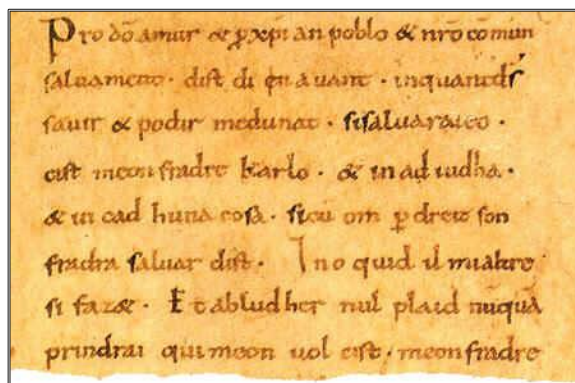 Pro dō amur & ꝓ xp̄i an poblo & nr̄o cōmun
saluament · dist di en auant · inquantdſ
sauir & podir medunat · sisaluaraieo ·
cist meon fradre karlo · & in ad iudha ·
& in cad huna cosa · sicu om ꝑ dreit son
fradra saluar dist · Ino quid il mialtre
si faz& · Et abludher nul plaid nūquā
prindrai qui meon uol cist · meon fradre